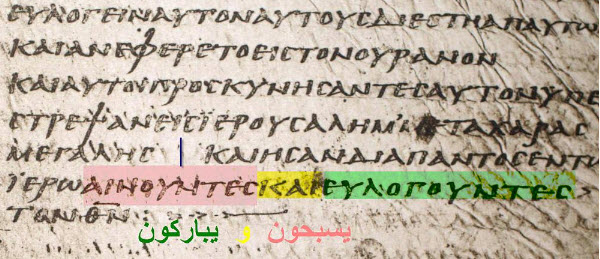 ΕΥΛΟΓΕΙΝΑΥΤΟΝΑΥΤΟΥϹΔΙΕϹΤΗΑΠΑΥΤΩ
ΚΑΙΑΝΕΦΕΡΕΤΟΕΙϹΤΟΝΟΥΡΑΝΟΝ
ΚΑΙΑΥΤΟΙΠΡΟϹΚΥΝΗϹΑΝΤΕϹΑΥΤΟΝΥΠΕ
ϹΤΡΕΨΑΝΕΙϹΪΕΡΟΥϹΑΛΗΜ'ΜΕΤΑΧΑΡΑϹ
ΜΕΓΑΛΗϹ ΚΑΙΗϹΑΝΔΙΑΠΑΝΤΟϹΕΝΤΩ
ΪΕΡΩΑΙΝΟΥΝΤΕϹΚΑΙΕΥΛΟΓΟΥΝΤΕϹ
ΤΟΝΘ̅Ν̅
يسبحون و يباركون